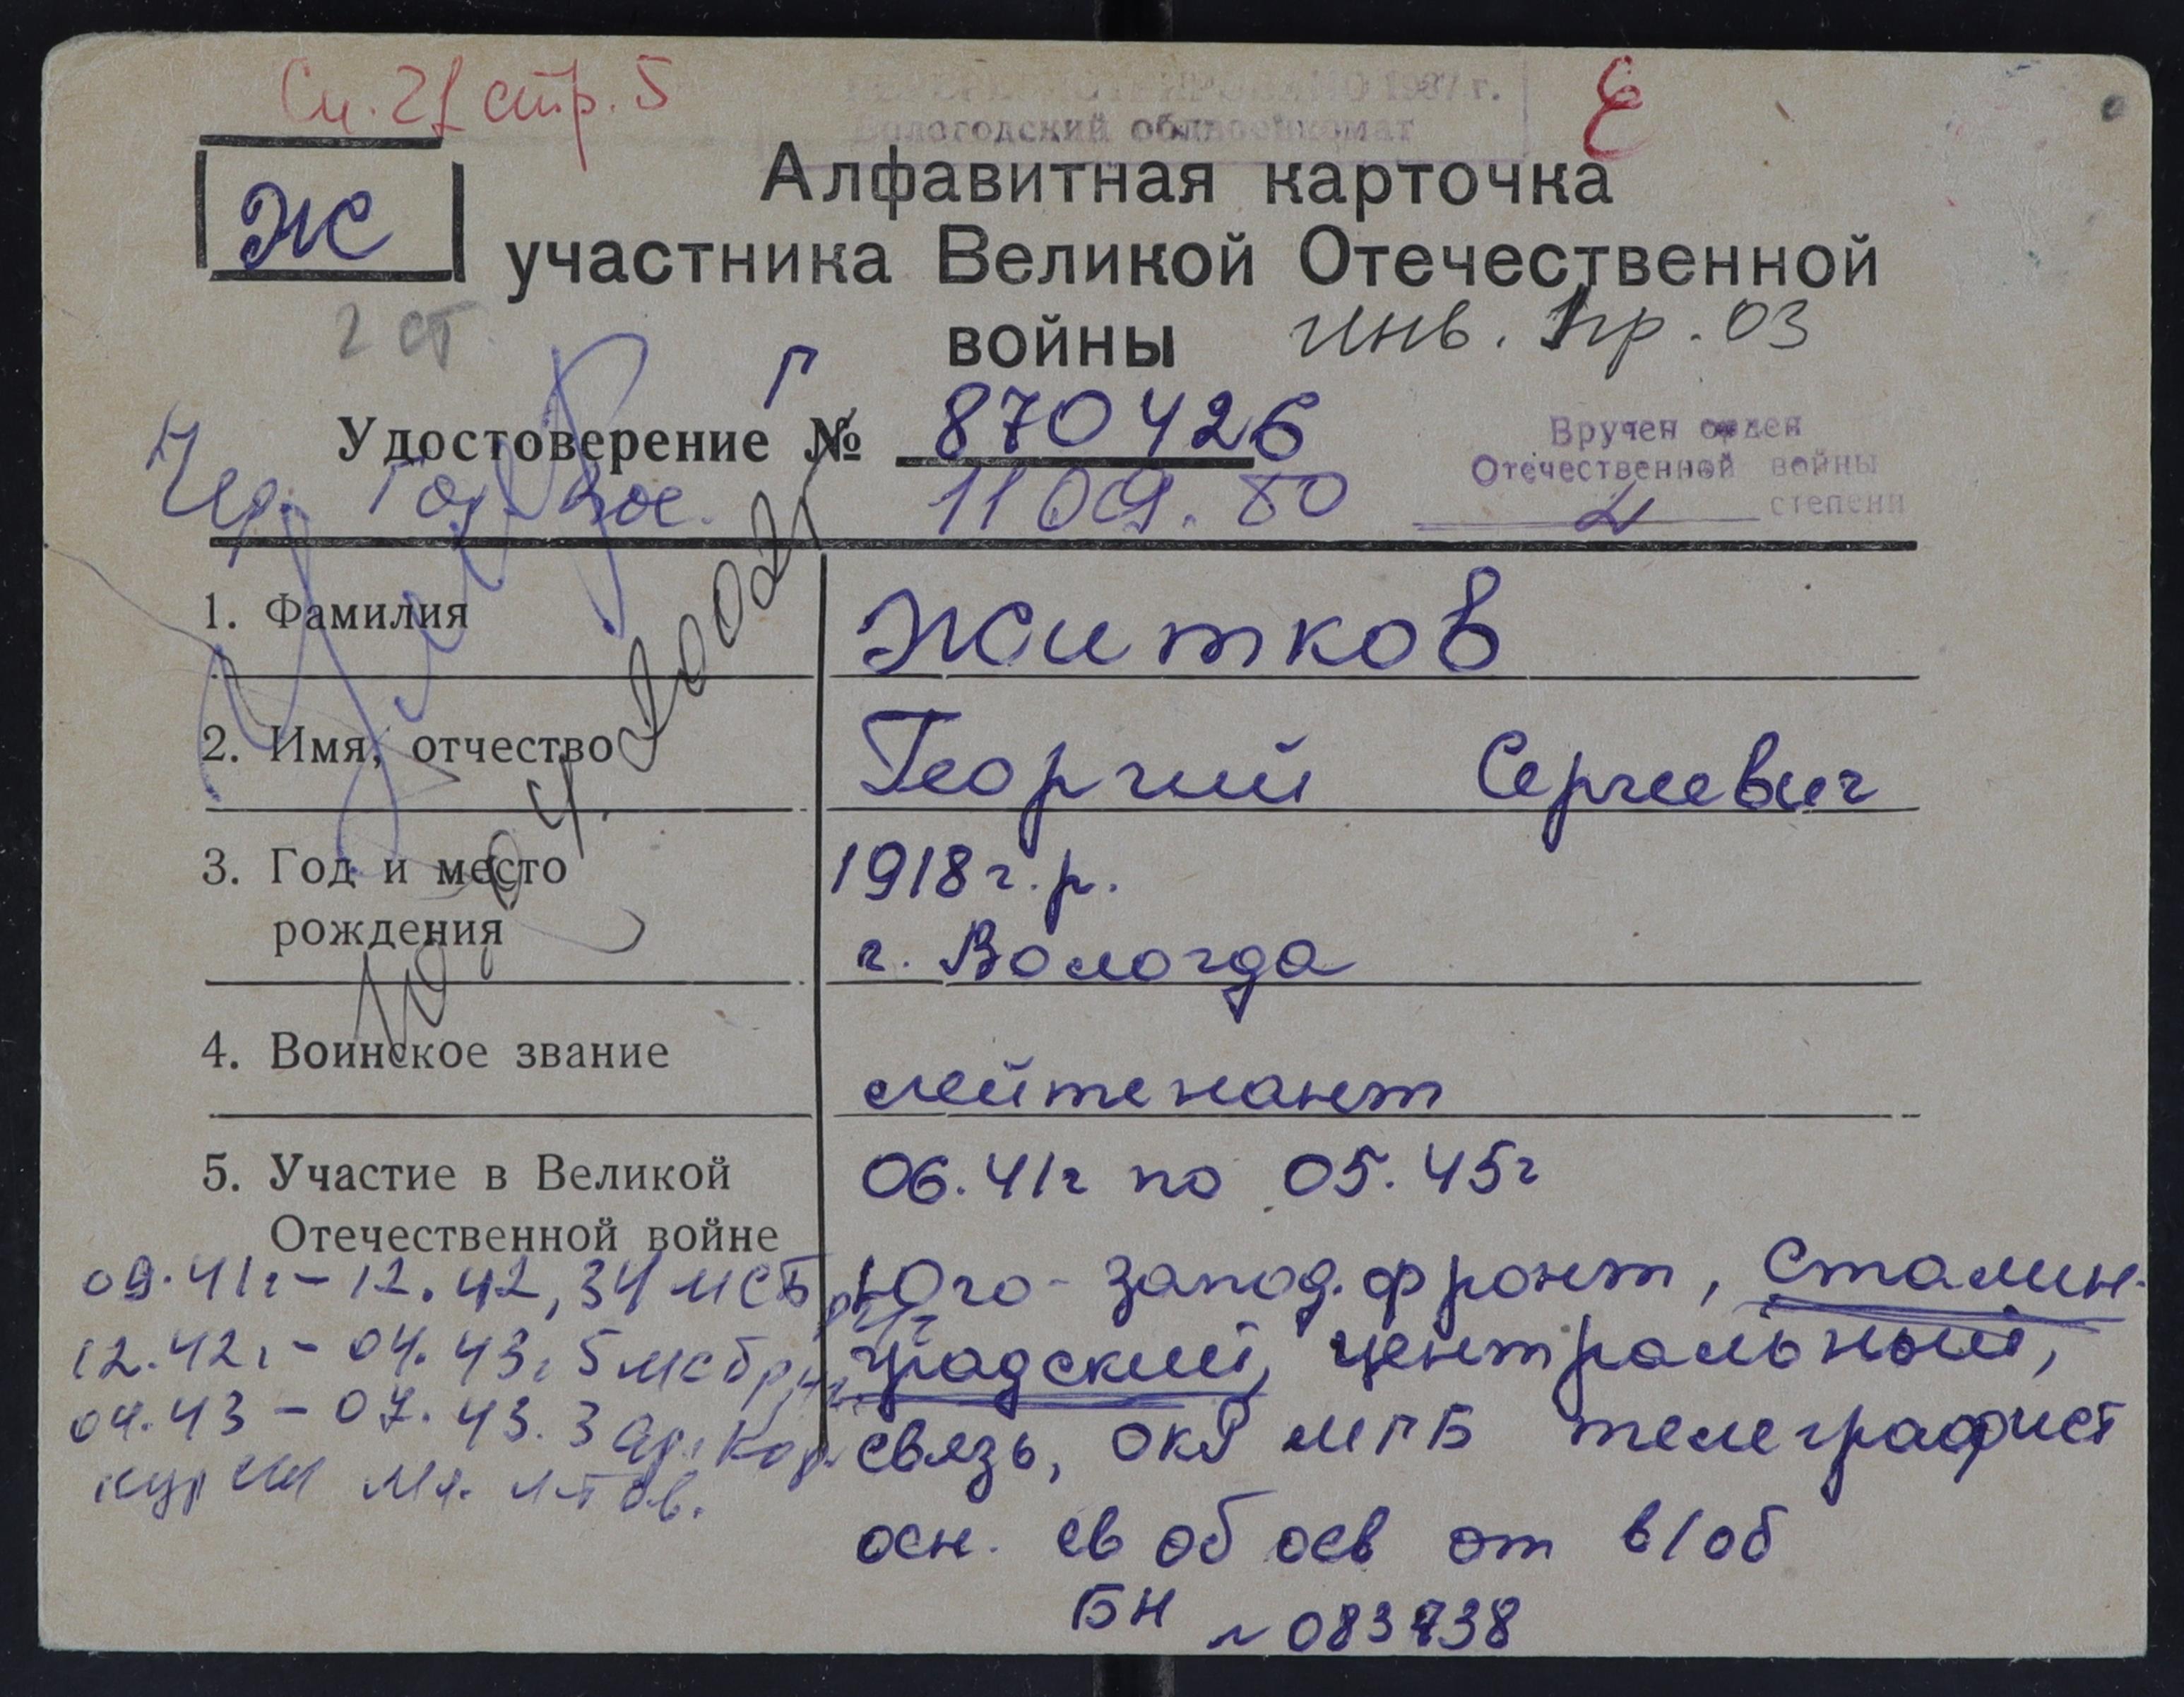 См. 21 стр. 5
1987 г.
Вологодский облвоенкомат
Е
Ж
Алфавитная карточка
участника Великой Отечественной
войны
инв. пр. 03
2 ст.
Г
Удостоверение № 870426
11 09. 80
Вручен орден
Отечественной войны
степени
1. Фамилия Житков
2. Имя, отчество Георгий Сергеевич
3. Год и место 1918 г.р.
рождения г. Вологда
4. Воинское звание лейтенант
5. Участие в Великой 06.41г по 05.45г
Отечественной войне
09.41г - 12.42, 34 МСБр
12.42г - 04.43, 5 мсбр
04.43 - 07.43. 3
курсы мл. л-тов.
Юго-запад. фронт, Сталин-
градский, центральный,
связь, ОКР МГБ телеграфист
осн. св об осв от в/об
БН № 083738